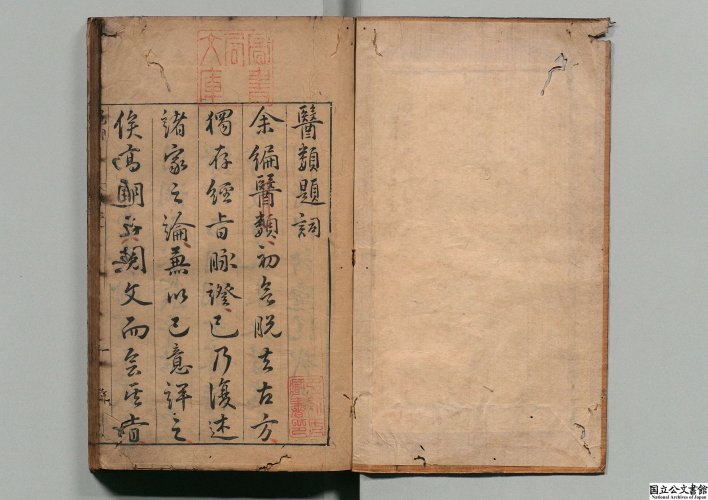 醫類題詞
余編醫類初意脫去古方
獨存經旨脉證已乃復述
諸家之論兼以己意詳之
俟高明玩文而會其旨
國立公文書館
National Archives of Japan